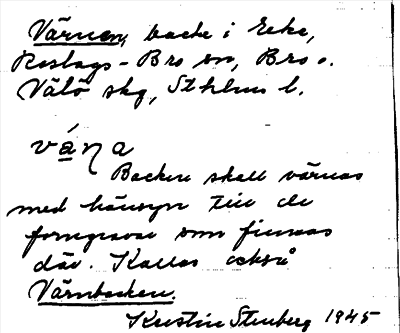 Värnen, backe i Eke,
Roslags-Bro sn, Bro o.
Vätö skg, Sthlms l.
vána
Backen skall värnas
med hänsyn till de
forngravar som finnas
där. Kallas också
Värnbacken.
Kerstin Stenberg 1945